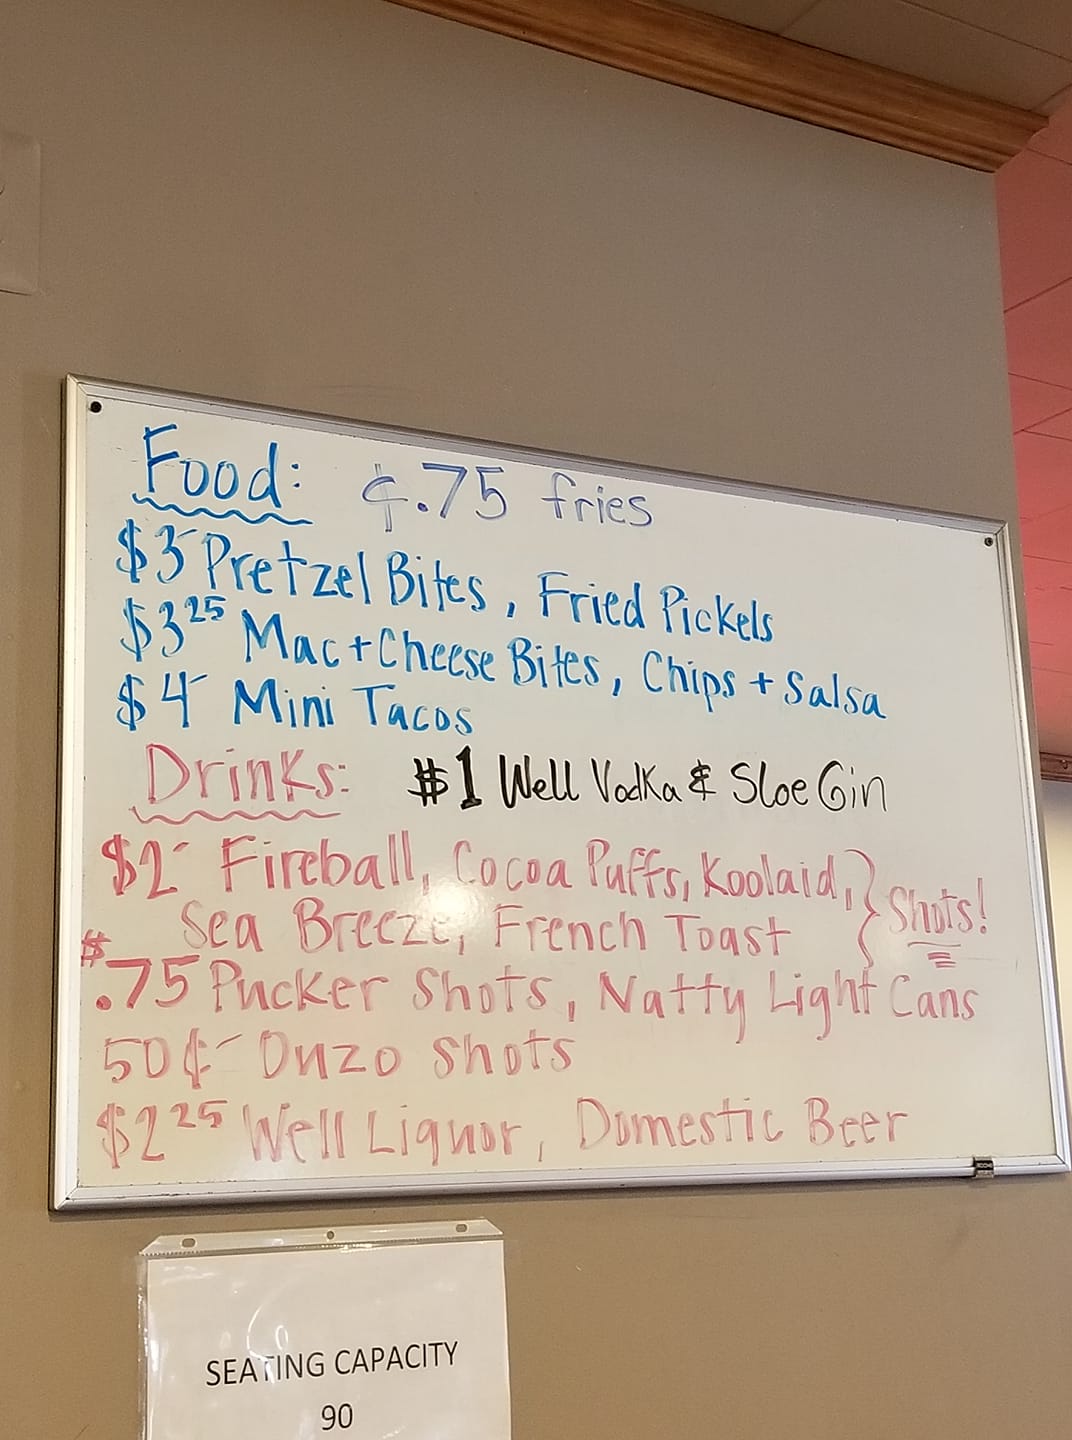 Food: ¢.75 fries
$3- Pretzel Bites, Fried Pickels
$3 25 Mac+Cheese Bites, Chips + Salsa
$4- Mini Tacos
Drinks: $1 Well Vodka & Sloe Gin
$2- Fireball, Cocoa Puffs, Koolaid,
Sea Breeze, French Toast } Shots!
$.75 Pucker Shots, Natty Light Cans
50¢- Ouzo Shots
$2 25 Well Liquor, Domestic Beer
SEATING CAPACITY
90